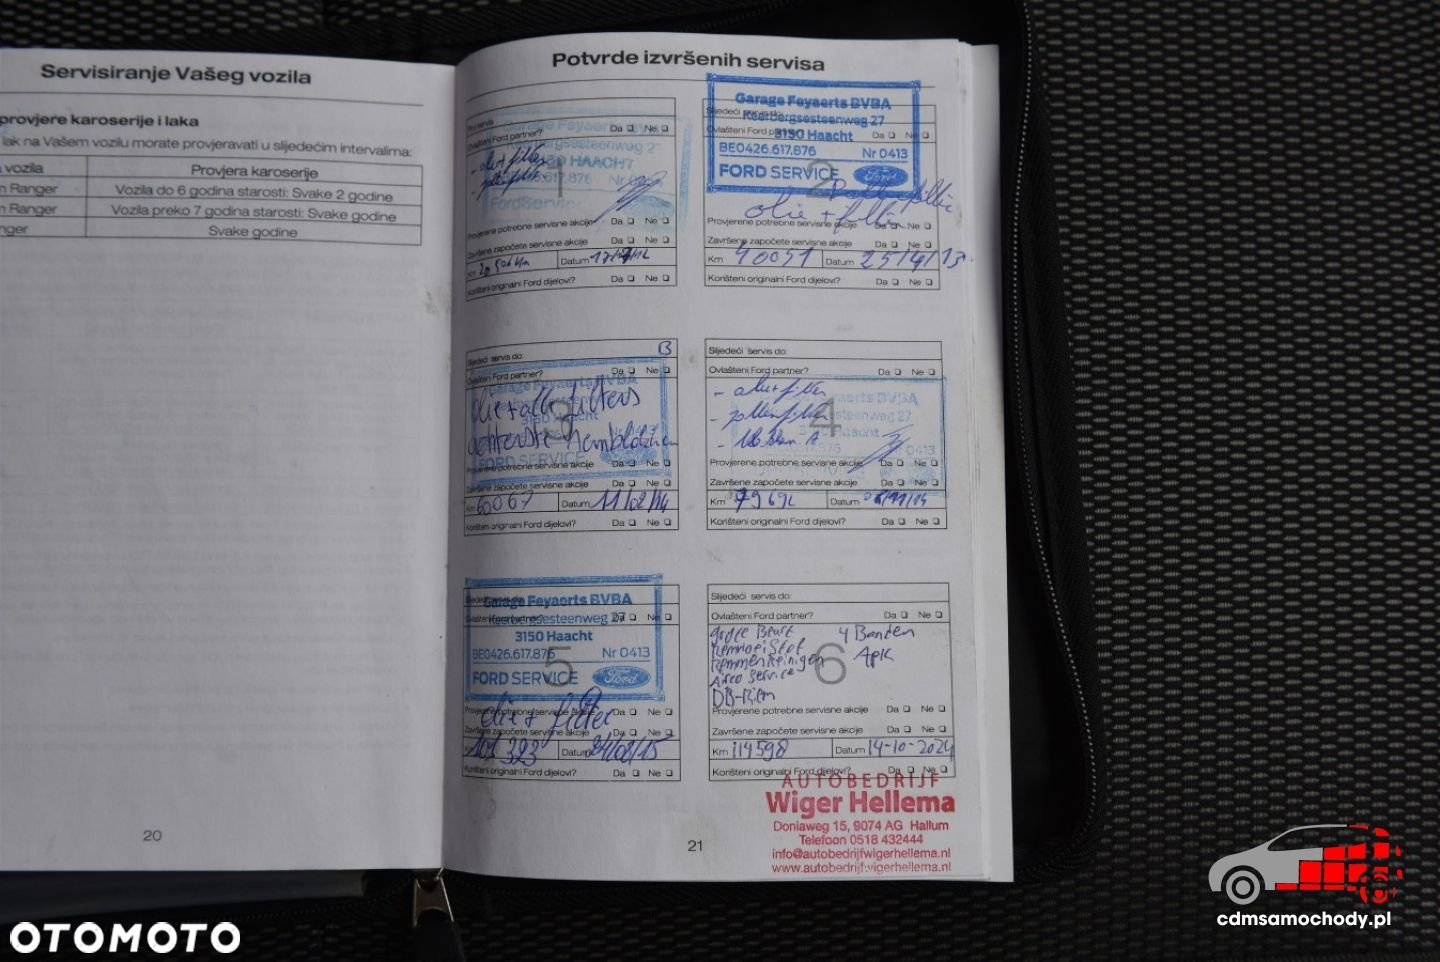 Servisiranje Vašeg vozila
provjere karoserije i laka
lak na Vašem vozilu morate provjeravati u slijedećim intervalima:
vozila
Provjera karoserije
Ranger
Vozila do 6 godina starosti: Svake 2 godine
Ranger
Vozila preko 7 godina starosti: Svake godine
Svake godine
20
Potvrde izvršenih servisa
Ovlašteni Ford partner? Da Ne
Garage Feyaerts
HAACHT
olie+filter
1
Provjerene potrebne servisne akcije Da Ne
Završene započete servisne akcije Da Ne
Km Datum
Korišteni originalni Ford dijelovi? Da Ne
Garage Feyaerts BVBA
Keerbergsesteenweg 27
3150 Haacht
BE0426.617.876 Nr 0413
FORD SERVICE Ford
2
olie + filter
Provjerene potrebne servisne akcije Da Ne
Završene započete servisne akcije Da Ne
Km 40051 Datum 25/4/13
Korišteni originalni Ford dijelovi? Da Ne
Slijedeći servis do: B
Ovlašteni Ford partner? Da Ne
olie + alle filters
3
FORD SERVICE
Provjerene potrebne servisne akcije Da Ne
Završene započete servisne akcije Da Ne
Km 60067 Datum 11/02/14
Korišteni originalni Ford dijelovi? Da Ne
Slijedeći servis do:
Ovlašteni Ford partner? Da Ne
- olie+filter
- pollenfilter
4
Provjerene potrebne servisne akcije Da Ne
Završene započete servisne akcije Da Ne
Km 79692 Datum
Korišteni originalni Ford dijelovi? Da Ne
Slijedeći servis do:
Garage Feyaerts BVBA
Keerbergsesteenweg 27
3150 Haacht
BE0426.617.876 Nr 0413
5
FORD SERVICE Ford
olie + filter
Provjerene potrebne servisne akcije Da Ne
Završene započete servisne akcije Da Ne
Datum 24/08/15
Korišteni originalni Ford dijelovi? Da Ne
Slijedeći servis do:
Ovlašteni Ford partner? Da Ne
grote Beurt 4 Banden
Remvloeistof APK
Remmen Reinigen
Airco service
6
Provjerene potrebne servisne akcije Da Ne
Završene započete servisne akcije Da Ne
Km 114598 Datum 14-10-2024
Korišteni originalni Ford dijelovi? Da Ne
AUTOBEDRIJF
Wiger Hellema
Doniaweg 15, 9074 AG Hallum
Telefoon 0518 432444
info@autobedrijfwigerhellema.nl
www.autobedrijfwigerhellema.nl
21
OTOMOTO
cdmsamochody.pl